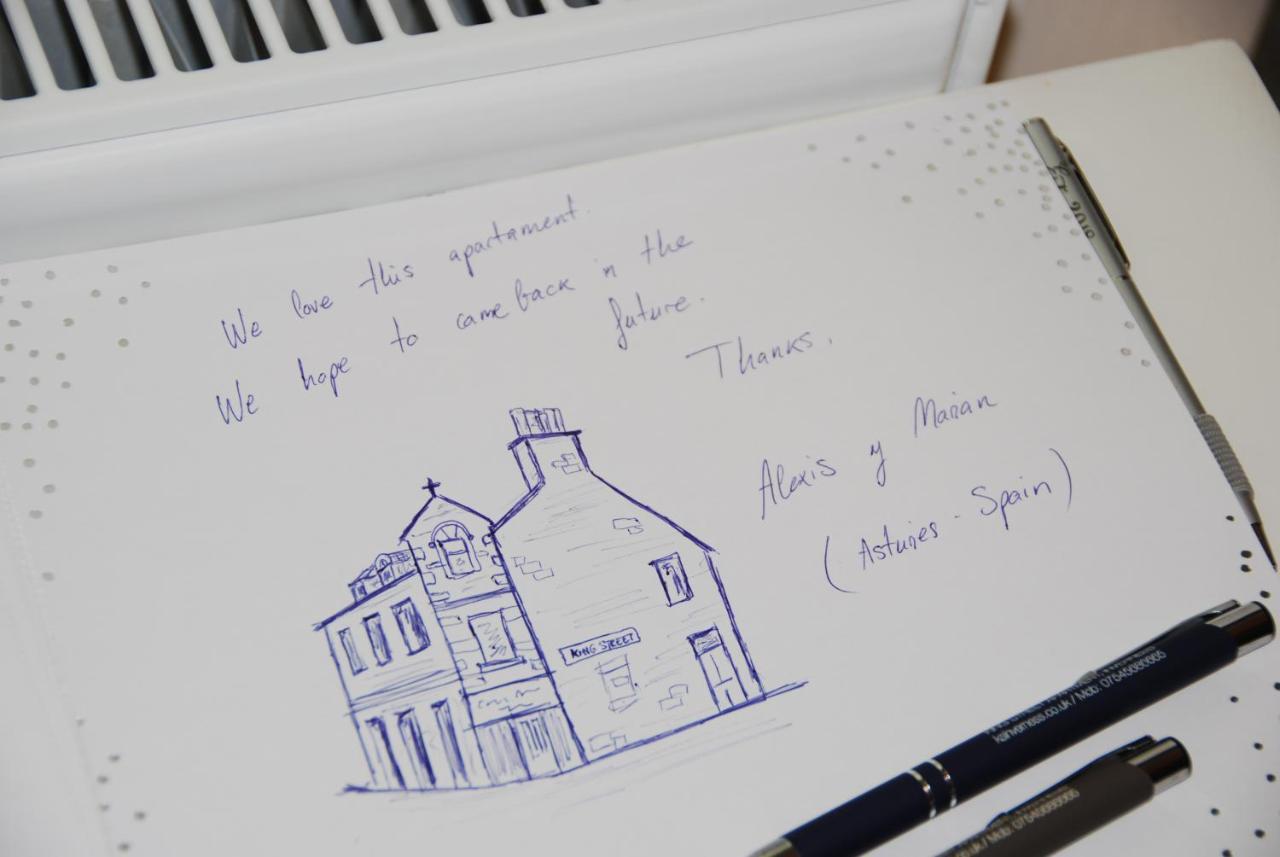 We love this apartament.
We hope to came back in the
future.
Thanks.
Alexis y Marian
(Asturies - Spain)
KING STREET
kainverness.co.uk / Mob: 07545680665
co.uk / Mob: 07545680665